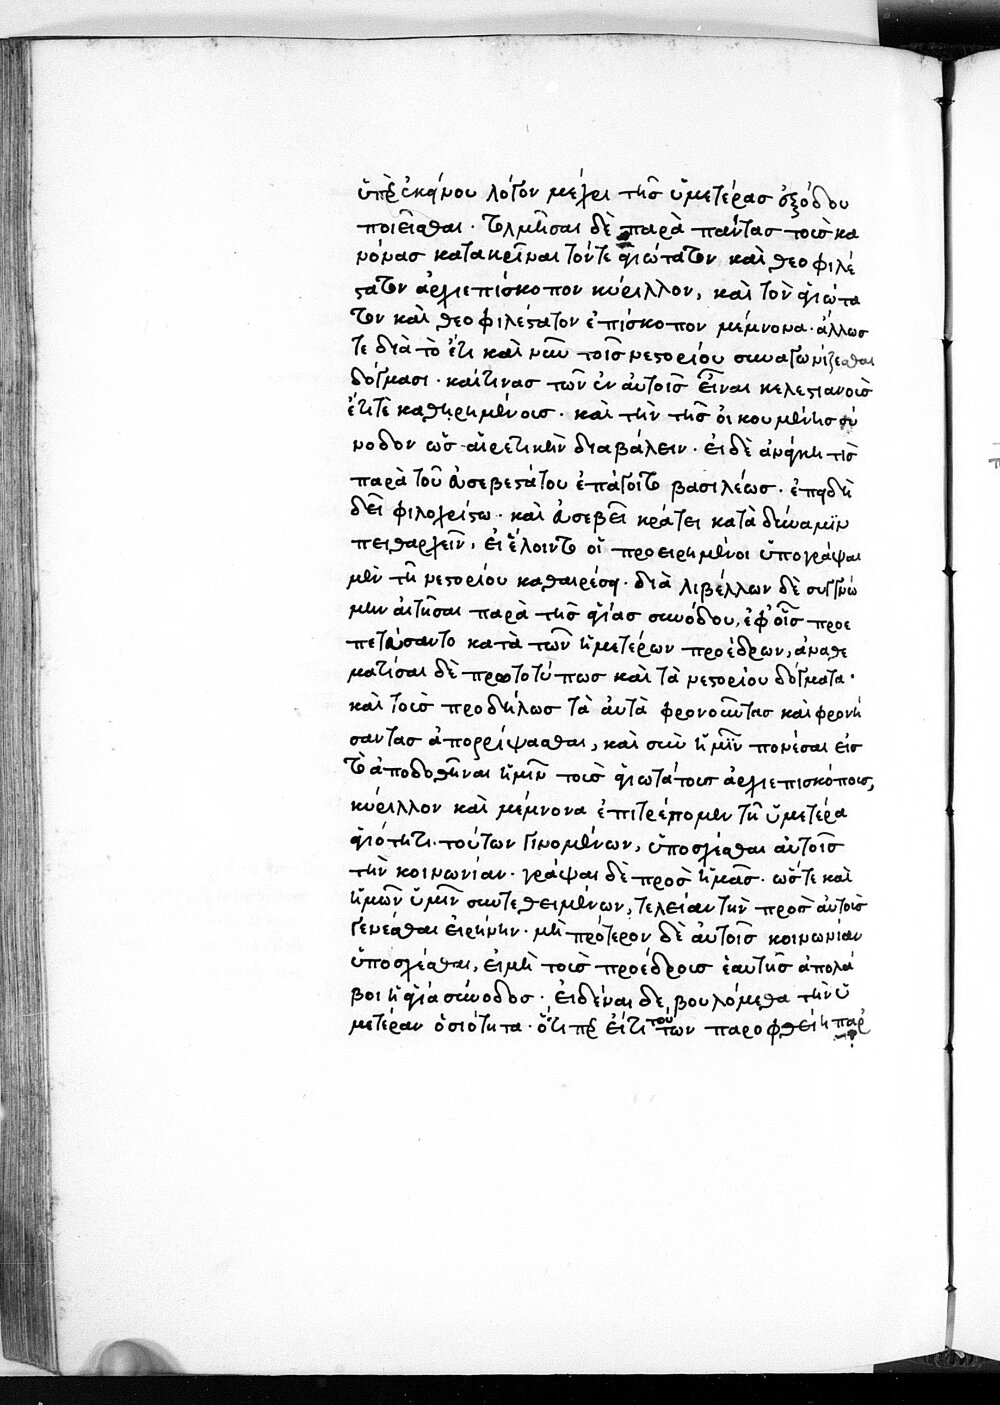 ὑπὲρ ἐκείνου λόγον μέχρι τῆς ὑμετέρας ἐξόδου
ποιεῖσθαι· τολμῆσαι δὲ παρὰ πάντας τοὺς κα
νόνας κατακρῖναι τόν τε ἁγιώτατον καὶ θεοφιλέ
στατον ἀρχιεπίσκοπον κύριλλον, καὶ τὸν ἁγιώτα
τον καὶ θεοφιλέστατον ἐπίσκοπον μέμνονα· ἄλλως
τε διὰ τὸ ἔτι καὶ νῦν τοῖς νεστορίου συναγωνίζεσθαι
δόγμασι· καί τινας τῶν ἐν αὐτοῖς εἶναι κελεστιανοῖς
ἔτι τὲ καθηρημένοις· καὶ τὴν τῆς οἰκουμένης σύ
νοδον ὡς αἱρετικὴν διαβάλειν· εἰ δὲ ἀνάγκη τις
παρὰ τοῦ εὐσεβεστάτου ἐπάγοιτο βασιλέως· ἐπειδὴ
δεῖ φιλοχρίστω· καὶ εὐσεβεῖ κράτει κατὰ δύναμϊν
πειθαρχεῖν, εἰ ἕλοιντο οἱ προειρημένοι ὑπογράψαι
μὲν τῆ νεστορίου καθαιρέσει· διὰ λιβέλλων δὲ συγγνώ
μην αἰτῆσαι παρὰ τῆς ἁγίας συνόδου, ἐφ' οἷς προε
πετάσαντο κατὰ τῶν ἡμετέρων προέδρων, ἀναθε
ματίσαι δὲ πρωτοτύπως καὶ τὰ νεστορίου δόγματα·
καὶ τοὺς προδήλως τὰ αὐτὰ φρονοῦντας καὶ φρονή
σαντας ἀπορρίψασθαι, καὶ σὺν ἡμῖν πονέσαι εἰς
τὸ ἀποδοθῆναι ἡμῖν τοὺς ἁγιωτάτους ἀρχιεπισκόπους,
κύριλλον καὶ μέμνονα ἐπιτρέπομεν τῆ ὑμετέρα
ἁγιότητι· τούτων γινομένων, ὑποσχέσθαι αὐτοῖς
τὴν κοινωνίαν· γράψαι δὲ πρὸς ἡμᾶς· ὥστε καὶ
ἡμῶν ὑμῖν συντεθειμένων, τελείαν τὴν πρὸς αὐτοὺς
γενέσθαι εἰρήνην· μὴ πρότερον δὲ αὐτοῖς κοινωνίαν
ὑποσχέσθαι, εἰ μὴ τοὺς προέδρους ἑαυτῆς ἀπολά
βοι ἡ ἁγία σύνοδος· εἰδέναι δὲ βουλόμεθα τὴν ὑ
μετέραν ὁσιότητα· ὅτι περ εἴ τι τούτων παροφθείη παρ